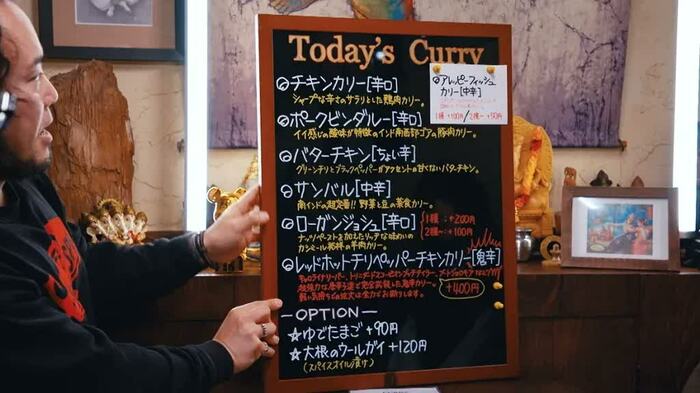 Today's Curry
◎チキンカリー[辛口]
シャープな辛さのサラリとした鶏肉カリー。
◎ポークビンダルー[辛口]
イイ感じの酸味が特徴のインド南西部ゴアの豚肉カリー。
◎バターチキン[ちょい辛]
グリーンチリとブラックペッパーがアクセントの甘くないバターチキン。
◎サンバル[中辛]
南インドの超定番!! 野菜と豆の菜食カリー。
◎ローガンジョシュ[辛口]
1種:+200円
2種〜:+100円
ナッツペーストを加えたリッチな味わいの
カシミール地方の羊肉カリー。
◎レッドホットチリペッパーチキンカリー[鬼辛]
キャロライナリーパー、トリニダードスコーピオン
+400円
-OPTION-
☆ゆでたまご+90円
☆大根のウールガイ+120円
(スパイスオイル漬け)
◎アレッピーフィッシュ
カリー[中辛]
1種+100円/2種〜+50円